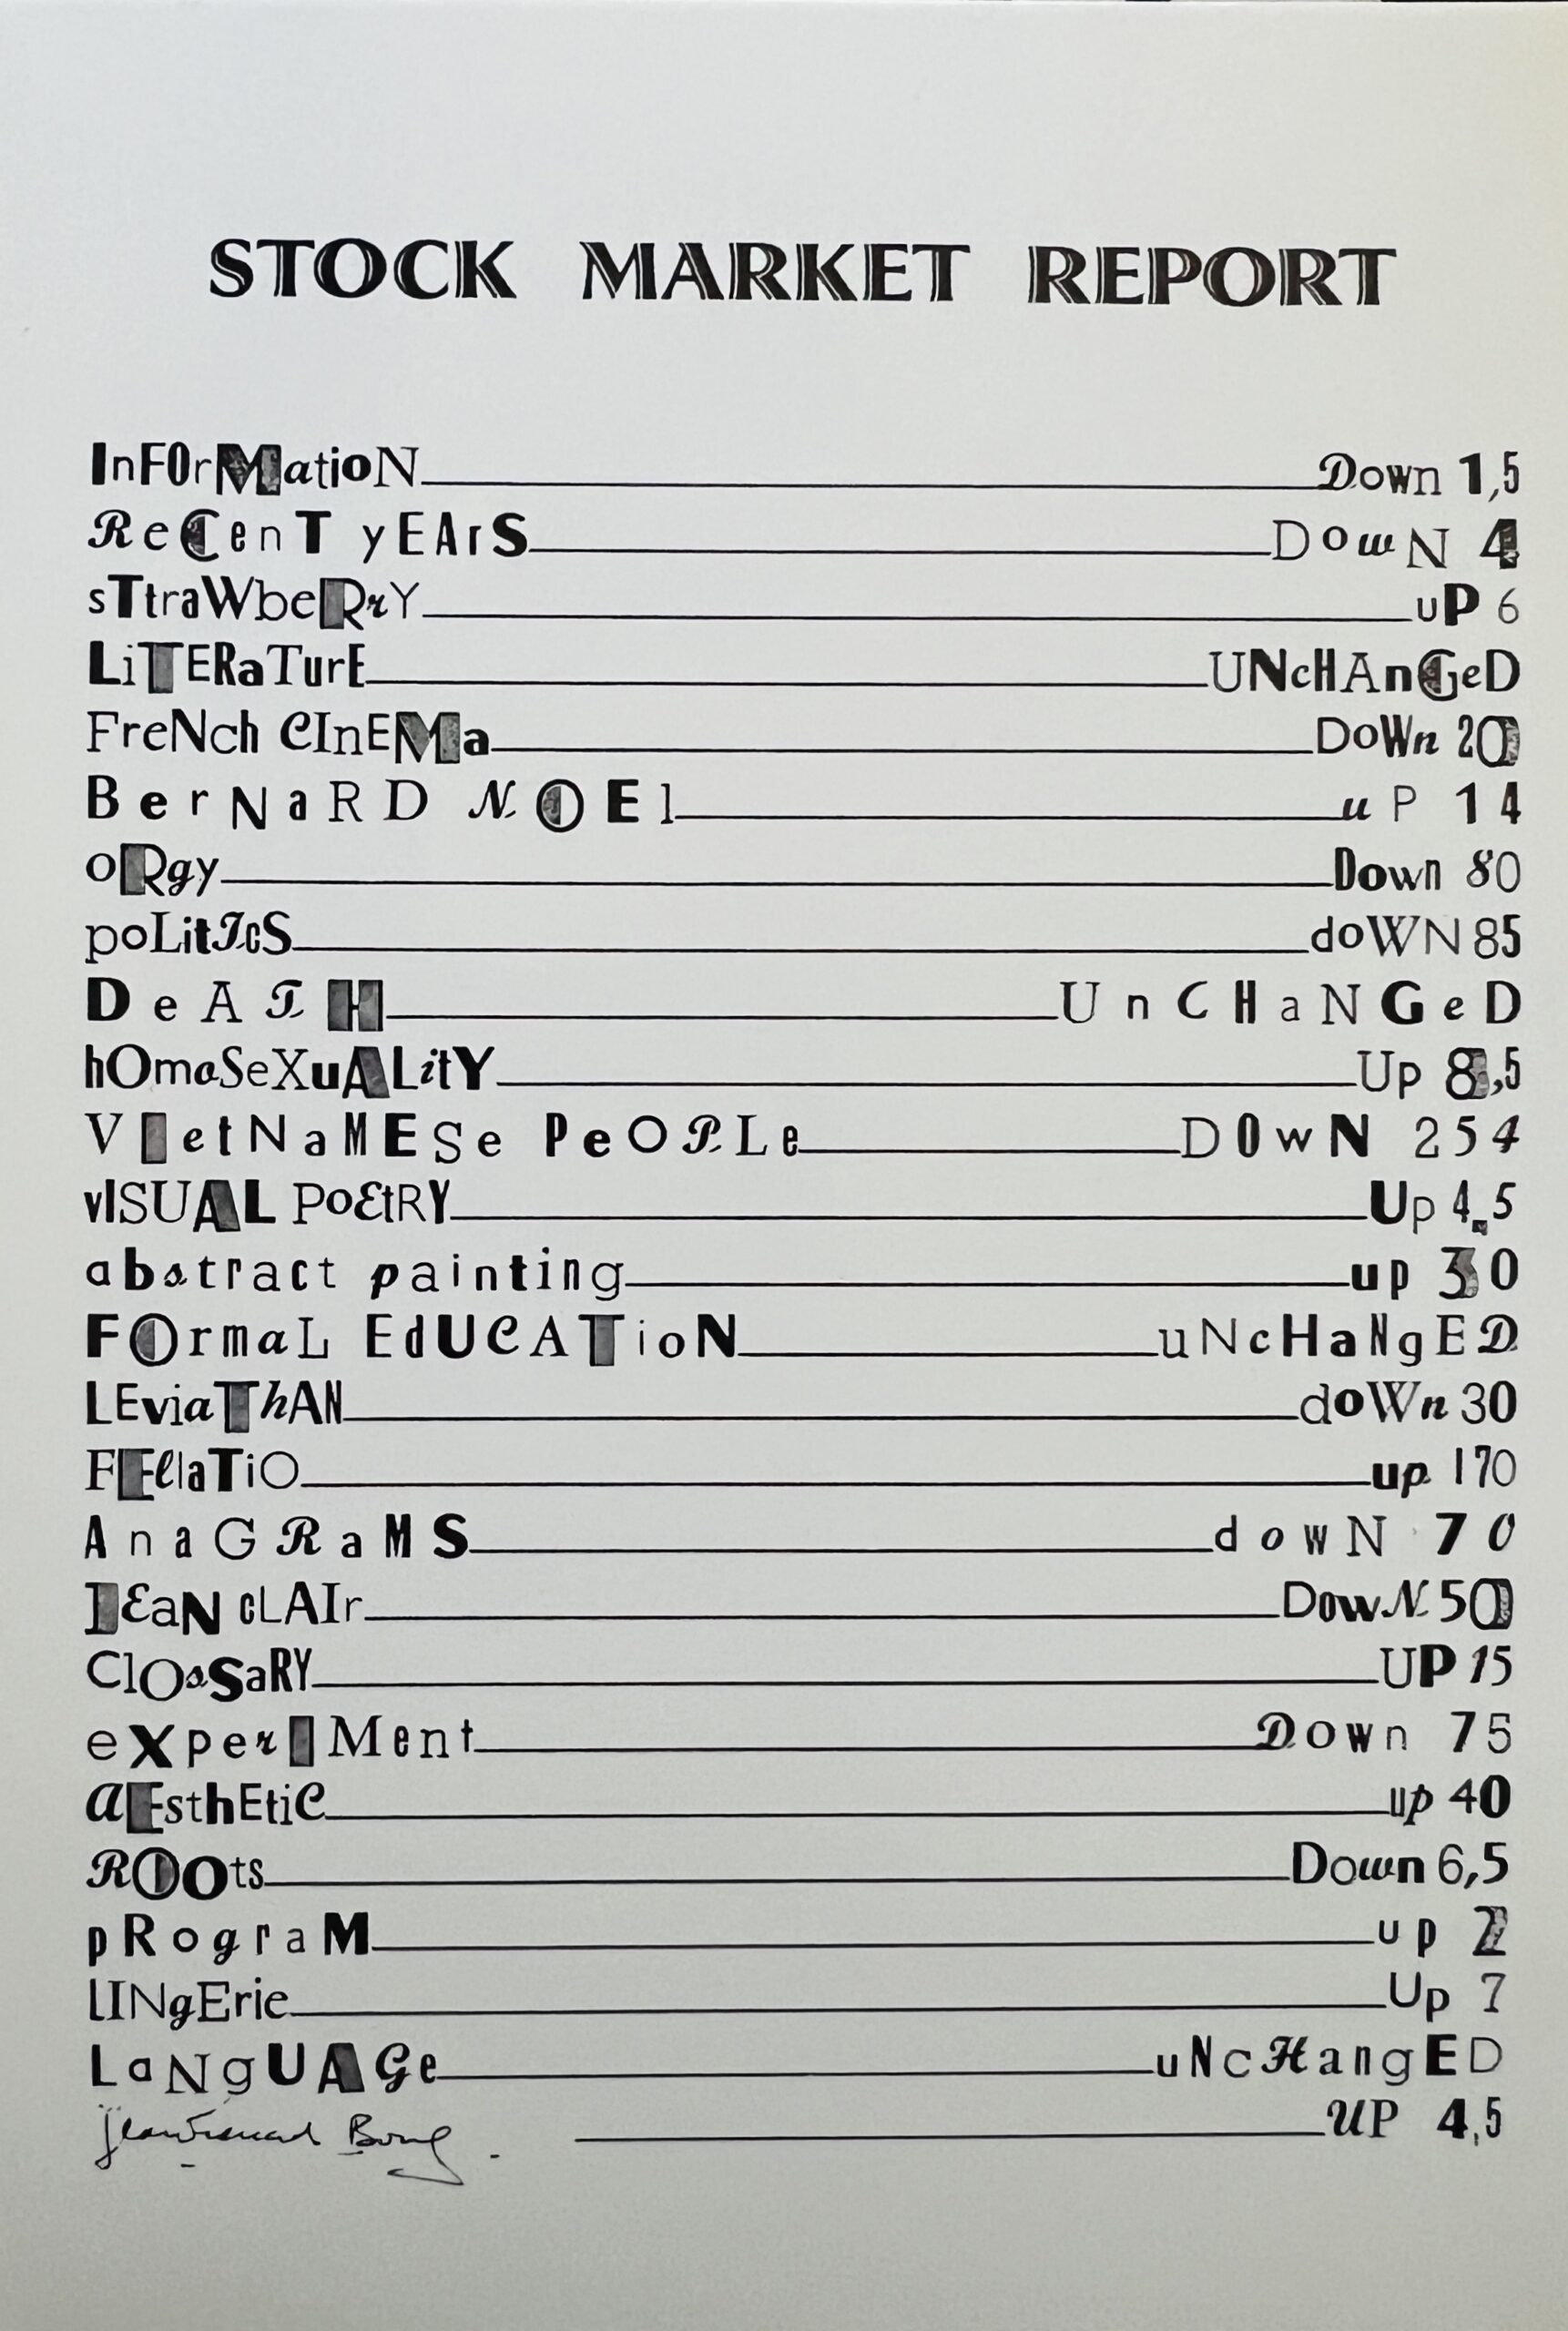 STOCK MARKET REPORT
InFOrMatioN Down 1,5
ReCenT yEArS DowN 4
sTtraWbeRrY uP 6
LiTERaTurE UNcHAnGeD
FreNch CInEMa DoWn 20
BerNaRD NOEl uP 14
oRgy Down 80
poLitIcS doWN 85
DeATH UnCHaNGeD
hOmoSeXuALitY Up 8,5
VIetNaMESe PeOPLe D0wN 254
vISUAL PoEtRY Up 4.5
abstract painting up 30
FOrmaL EdUCATioN uNcHaNgED
LEviaThAN doWn 30
FEllaTiO up 170
AnaGRaMS dowN 70
JEaN cLAIr DowN 50
ClOsSaRY UP 15
eXperIMent Down 75
aEsthEtiC up 40
ROOts Down 6,5
pRograM up 2
lINgErie Up 7
LaNgUAGe uNcHangED
UP 4,5